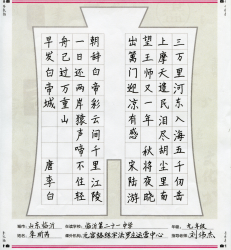 三万里河东入海五千仞岳
上摩天遗民泪尽胡尘里南
望王师又一年 秋将夜晓
出篱门迎凉有感 宋陆游
朝辞白帝彩云间千里江陵
一日还两岸猿声啼不住轻
舟已过万重山
早发白帝城 唐李白
山东临沂 临沂第二十一中学 年级: 九年级
姓名: 练字法罗庄运营中心 刘伟杰